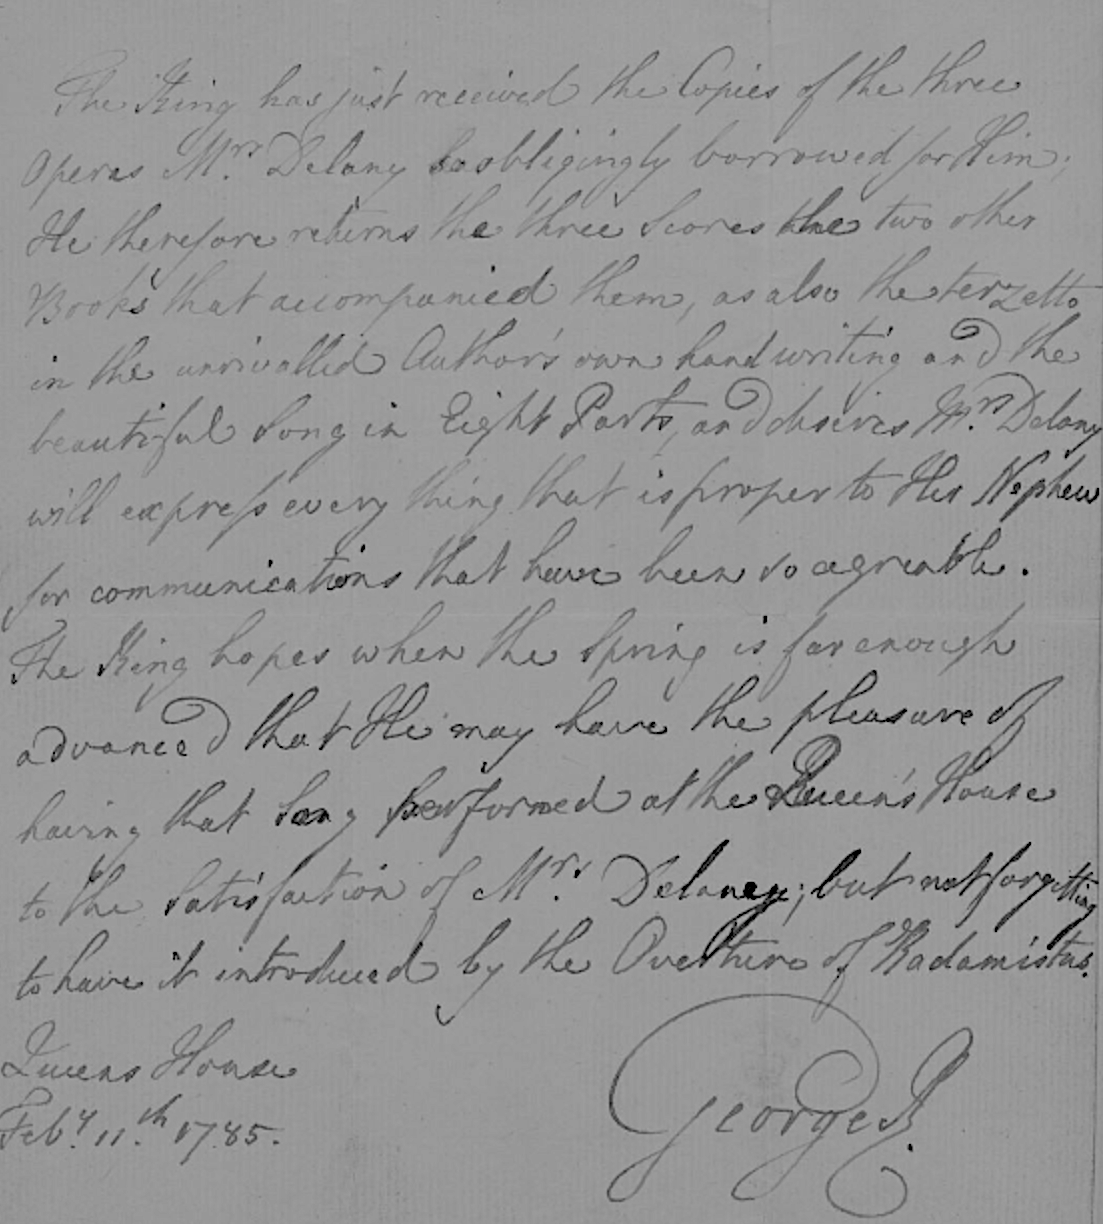 The King has just received the Copies of the three
Operas Mrs. Delany so obligingly borrowed for Him;
He therefore returns the three Scores the two other
Books that accompanied them, as also the terzetto
in the unrivalled Author's own hand writing and the
beautiful Song in Eight Parts, and desires Mrs. Delany
will express every thing that is proper to Her Nephew
for communications that have been so agreable.
The King hopes when the Spring is far enough
advanced that He may have the pleasure of
having that Song performed at the Queen's House
to the satisfaction of Mrs. Delaney; but not forgetting
to have it introduced by the Overture of Radamistus.
Queens House
Feby. 11th. 1785.
George R.